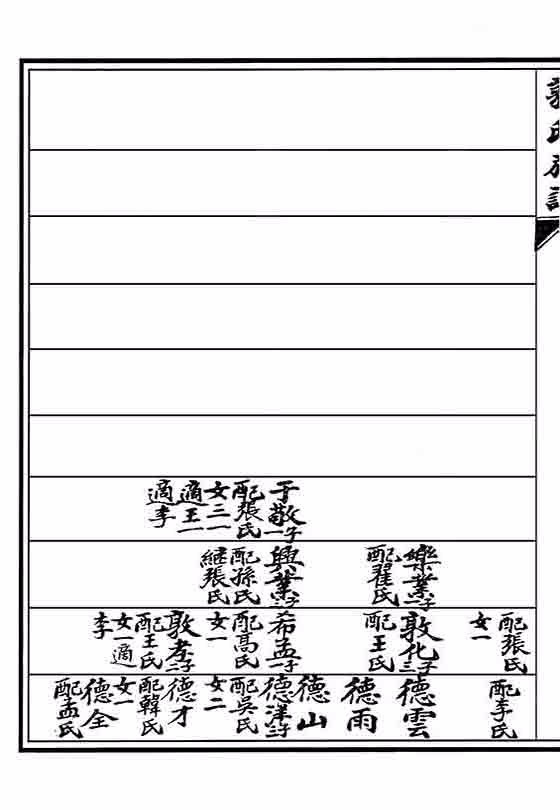 郭氏族譜
于敬一子
配張氏
女三一
適王一
適李
樂業一子
配翟氏
興業二子
配孫氏
継張氏
配張氏
女一
敦化三子
配王氏
希孟一子
配高氏
女一
敦孝二子
配王氏
女一適
李
配李氏
德雲
德雨
德山
德洋二子
配吳氏
女二
德才
配韓氏
女一
德全
配孟氏